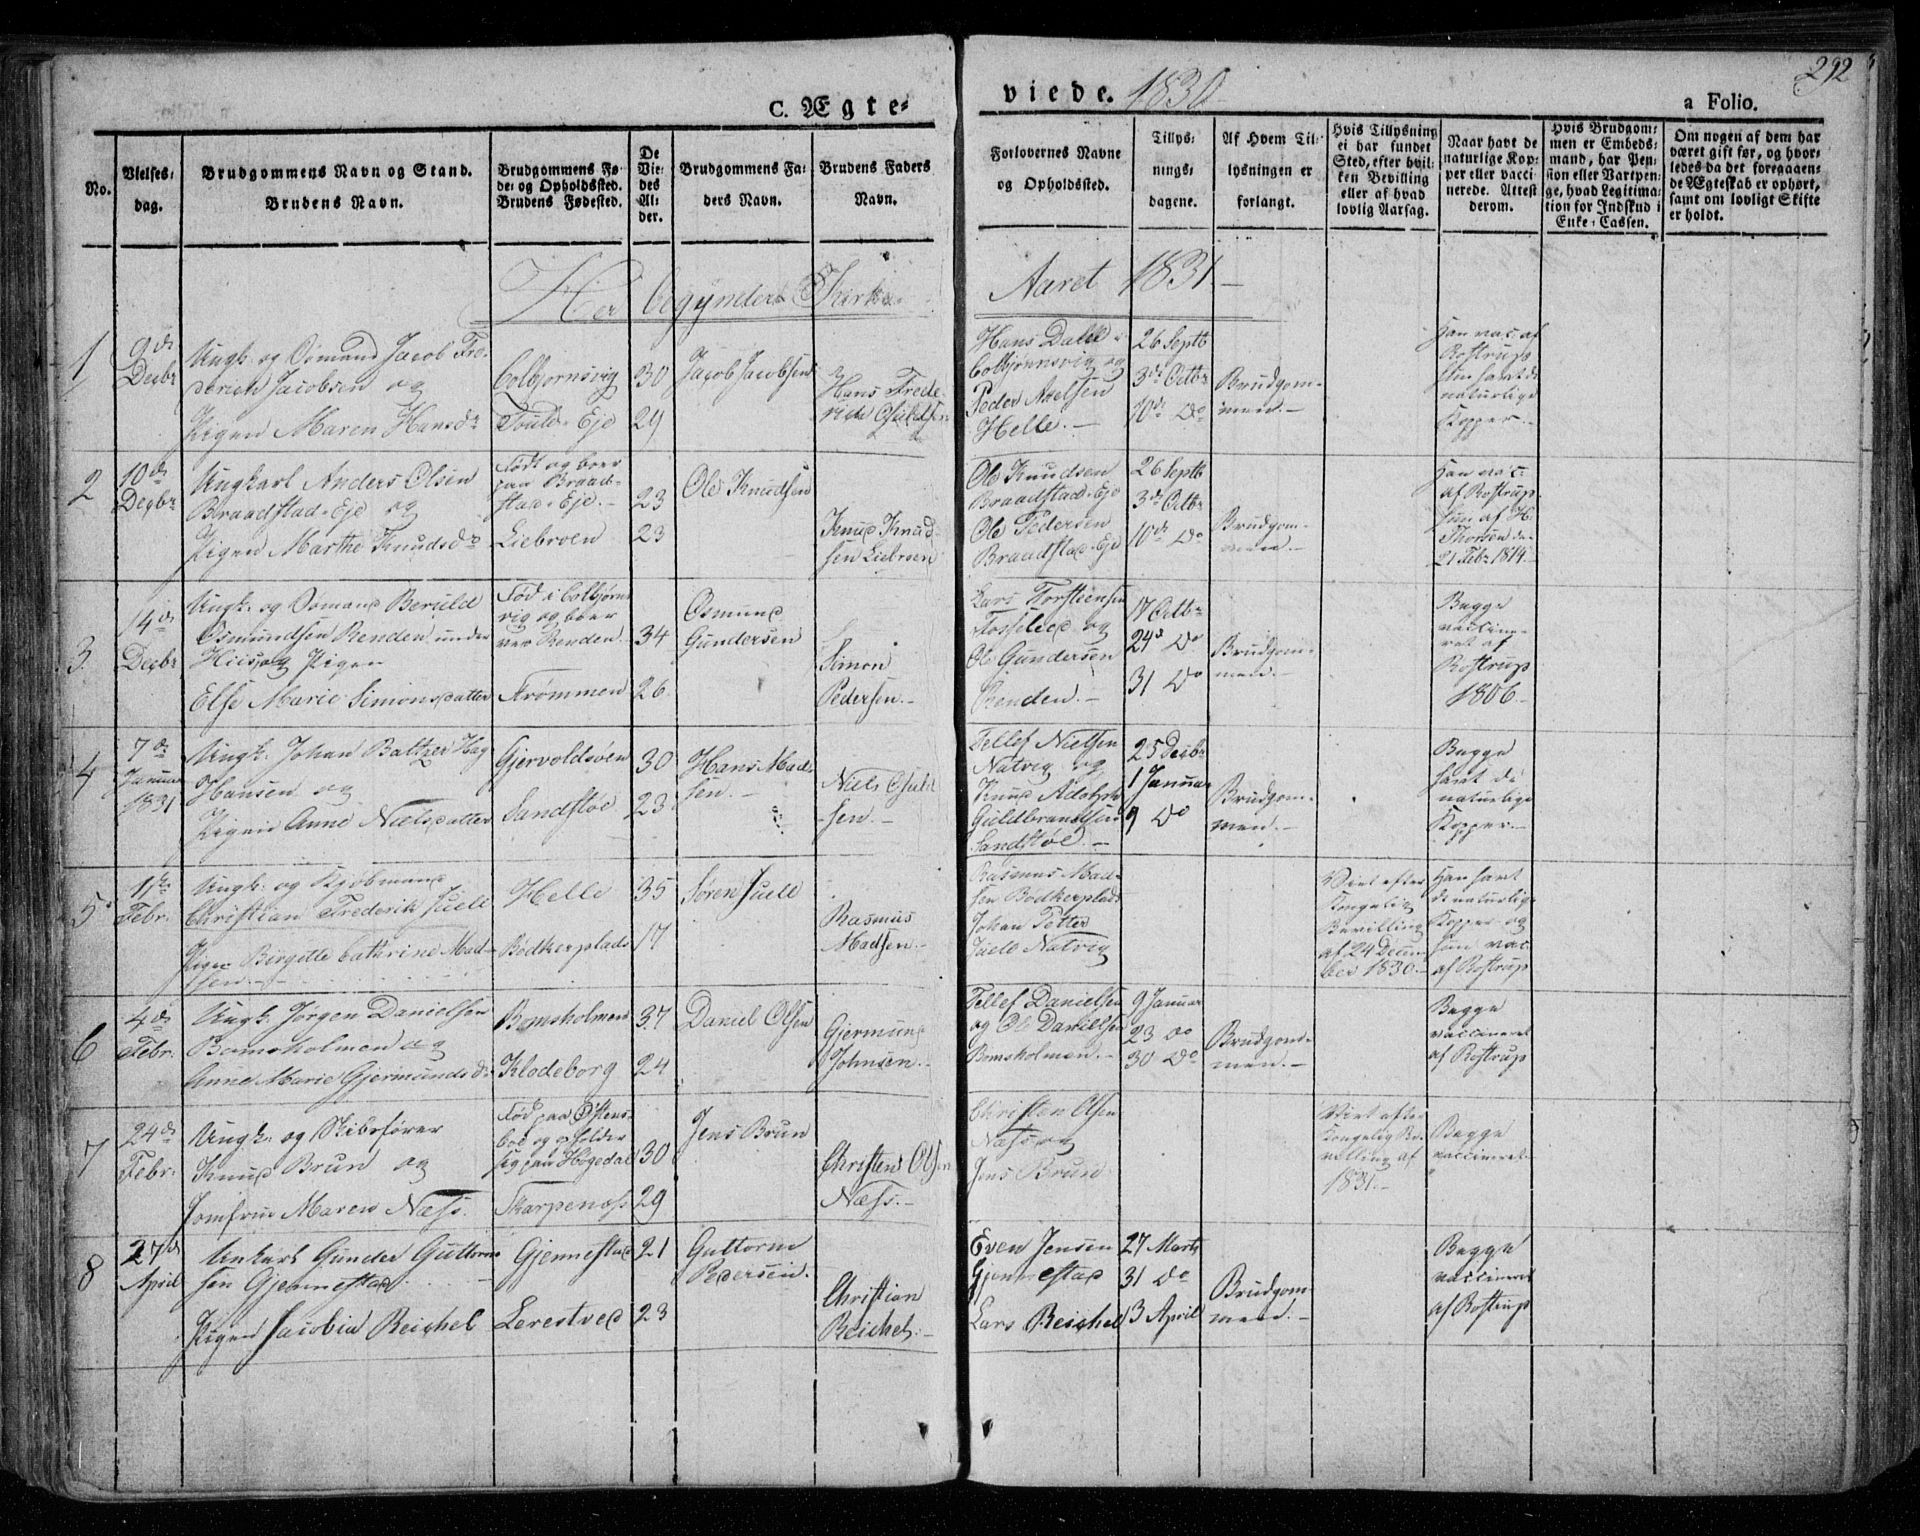 292
C. Ægte-
viede. 1830
a Folio.
No.
Vielses-
dag.
Brudgommens Navn og Stand.
Brudens Navn.
Brudgommens Fø-
de- og Opholdssted.
Brudens Fødested.
De
Vie-
des
Al-
der.
Brudgommens Fa-
ders Navn.
Brudens Faders
Navn.
Forlovernes Navne
og Opholdssted.
Tillys-
nings-
dagene.
Af Hvem Til-
lysningen er
forlangt.
Hvis Tillysning
ei har fundet
Sted, efter hvil-
ken Bevilling
eller af hvad
lovlig Aarsag.
Naar havt de
naturlige Kop-
per eller vacci-
nerede. Attest
derom.
Hvis Brudgom-
men er Embeds-
mand, har Pen-
sion eller Vartpen-
ge, hvad Legitima-
tion for Indskud i
Enke-Cassen.
Om nogen af dem har
været gift før, og hvor-
ledes da det foregaaen-
de Ægteskab er ophørt,
samt om lovligt Skifte
er holdt.
Her begynder Kirke-
Aaret 1831
1
9de
Decbr
Ungk. og Sømand Jacob Fre-
derich Jacobsen og
Pigen Maren Hansdr
Colbjørnsvig
Eje
30
29
Jacob Jacobsen
Hans Frede-
Hans Dale
Colbjørnsvig og
Peder Axelsen
Helle.
26 Septb
3de Octbr
10de Do
Brudgom-
men.
Han vac. af
Rostrup
hun havt de
naturlige
Kopper
2
10de
Decbr
Ungkarl Anders Olsen
Braadstad-Eje og
Pigen Marthe Knudsdr
Født og boer
paa Braad-
stad-Eje.
Liebroen
23
23
Ole Knudsen
Knud Knud-
sen Liebroen
Ole Knudsen
Braadstad-Eje
Ole Pedersen
Braadstad-Eje
26 Septb
3de Octbr
10de Do
Brudgom-
men
Han vac.
af Rostrup
hun af H.
Thorsen de
21 Febr 1814.
3
14de
Decbr
Ungk. og Sømand Beruld
Osmundsen Renden under
Hiis og Pigen
Else Marie Simonsdatter
Fød i Colbjørns-
vig og boer
ved Renden
Strømmen
34
26
Osmund
Gundersen
Simon
Pedersen.
Lars Torstensen
og
Ole Gundersen
Renden.
17 Octbr
24de Do
31 Do
Brudgom-
men.
Begge
vaccine-
ret af
Rostrup
1806.
4
7de
Januar
1831
Ungk. Johan Baltzer Hag
Hansen og
Pigen Anne Nielsdatter
Gjervoldsøen
Sandstøe
30
23
Hans Mad-
sen.
Niels Guld-
sen.
Tellef Nielsen
Natvig og
Knud Adolph
Guldbrandsen
Sandstøe.
25 Decbr
1 Januar
9 Do
Brudgom-
men.
Begge
havt de
naturlige
Kopper
5
1ste
Febr.
Ungk. og Kjøbmand
Christian Frederik Juell
Pigen Birgitte Cathrine Mad-
sen.
Helle
Bødkerplads
35
17
Søren Juell
Rasmus
Madsen.
Rasmus Mad-
sen Bødkerplads
Johan Petter
Juell Natvig
Viet efter
Kongelig
Bevilling
af 24 Decem-
ber 1830.
Han havt
de naturlige
Kopper og
hun vac.
af Rostrup
6
4de
Febr.
Ungk. Jørgen Danielsen
Bomsholmen og
Anne Marie Gjermundsdr
Bomsholmen
Klodeborg
37
24
Daniel Olsen
Gjermund
Johnsen.
Tellef Danielsen
og Ole Danielsen
Bomsholmen.
9 Januar
23 Do
30 Do
Brudgom-
men.
Begge
vaccineret
af Rostrup
7
24de
Febr.
Ungk. og Skibsfører
Knud Brun og
Jomfrue Maren Næss.
Fød paa Østens-
boe og opholder
sig paa Høgedal
Skarpenæs
30
29
Jens Brun
Christen Olsen
Næss.
Christen Olsen
Næss og
Jens Brun
Viet efter
Kongelig Be-
villing af
1831.
Begge
vaccineret
8
27de
April
Unkarl Gunder Guttorm-
sen Gjennestad
Pigen Jacobia Reichel
Gjennestad
Lerestved
21
23
Guttorm
Pedersen.
Christian
Reichel.
Even Jensen
Gjennestad
Lars Reichel
27 Marts
31 Do
3 April
Brudgom-
men.
Begge
vaccineret
af Rostrup